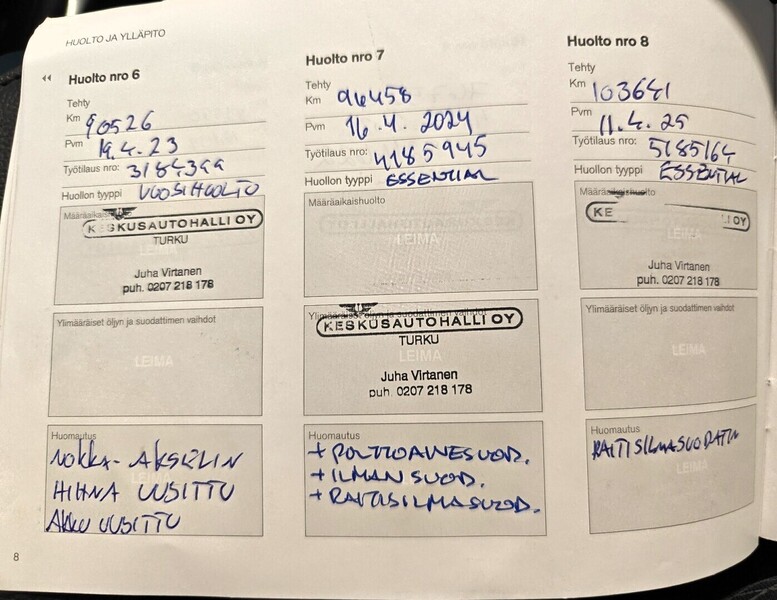 HUOLTO JA YLLÄPITO
Huolto nro 6
Tehty
Km 90526
Pvm 19.4.23
Työtilaus nro: 3184399
Huollon tyyppi VUOSIHUOLTO
Määräaikaishuolto
KESKUSAUTOHALLI OY
TURKU
LEIMA
Juha Virtanen
puh. 0207 218 178
Ylimääräiset öljyn ja suodattimen vaihdot
LEIMA
Huomautus
NOKKA-AKSELIN
HIHNA UUSITTU
AKKU UUSITTU
Huolto nro 7
Tehty
Km 96458
Pvm 16.4.2024
Työtilaus nro: 4185945
Huollon tyyppi ESSENTIAL
Määräaikaishuolto
LEIMA
Ylimääräiset öljyn ja suodattimen vaihdot
KESKUSAUTOHALLI OY
TURKU
LEIMA
Juha Virtanen
puh. 0207 218 178
Huomautus
+ POLTTOAINESUOD.
+ ILMANSUOD.
+ RAITISILMASUOD.
Huolto nro 8
Tehty
Km 103641
Pvm 11.4.25
Työtilaus nro: 5185164
Huollon tyyppi ESSENTIAL
Määräaikaishuolto
KE LI OY
LEIMA
Juha Virtanen
puh. 0207 218 178
Ylimääräiset öljyn ja suodattimen vaihdot
LEIMA
Huomautus
RAITISILMASUODATIN
LEIMA
8